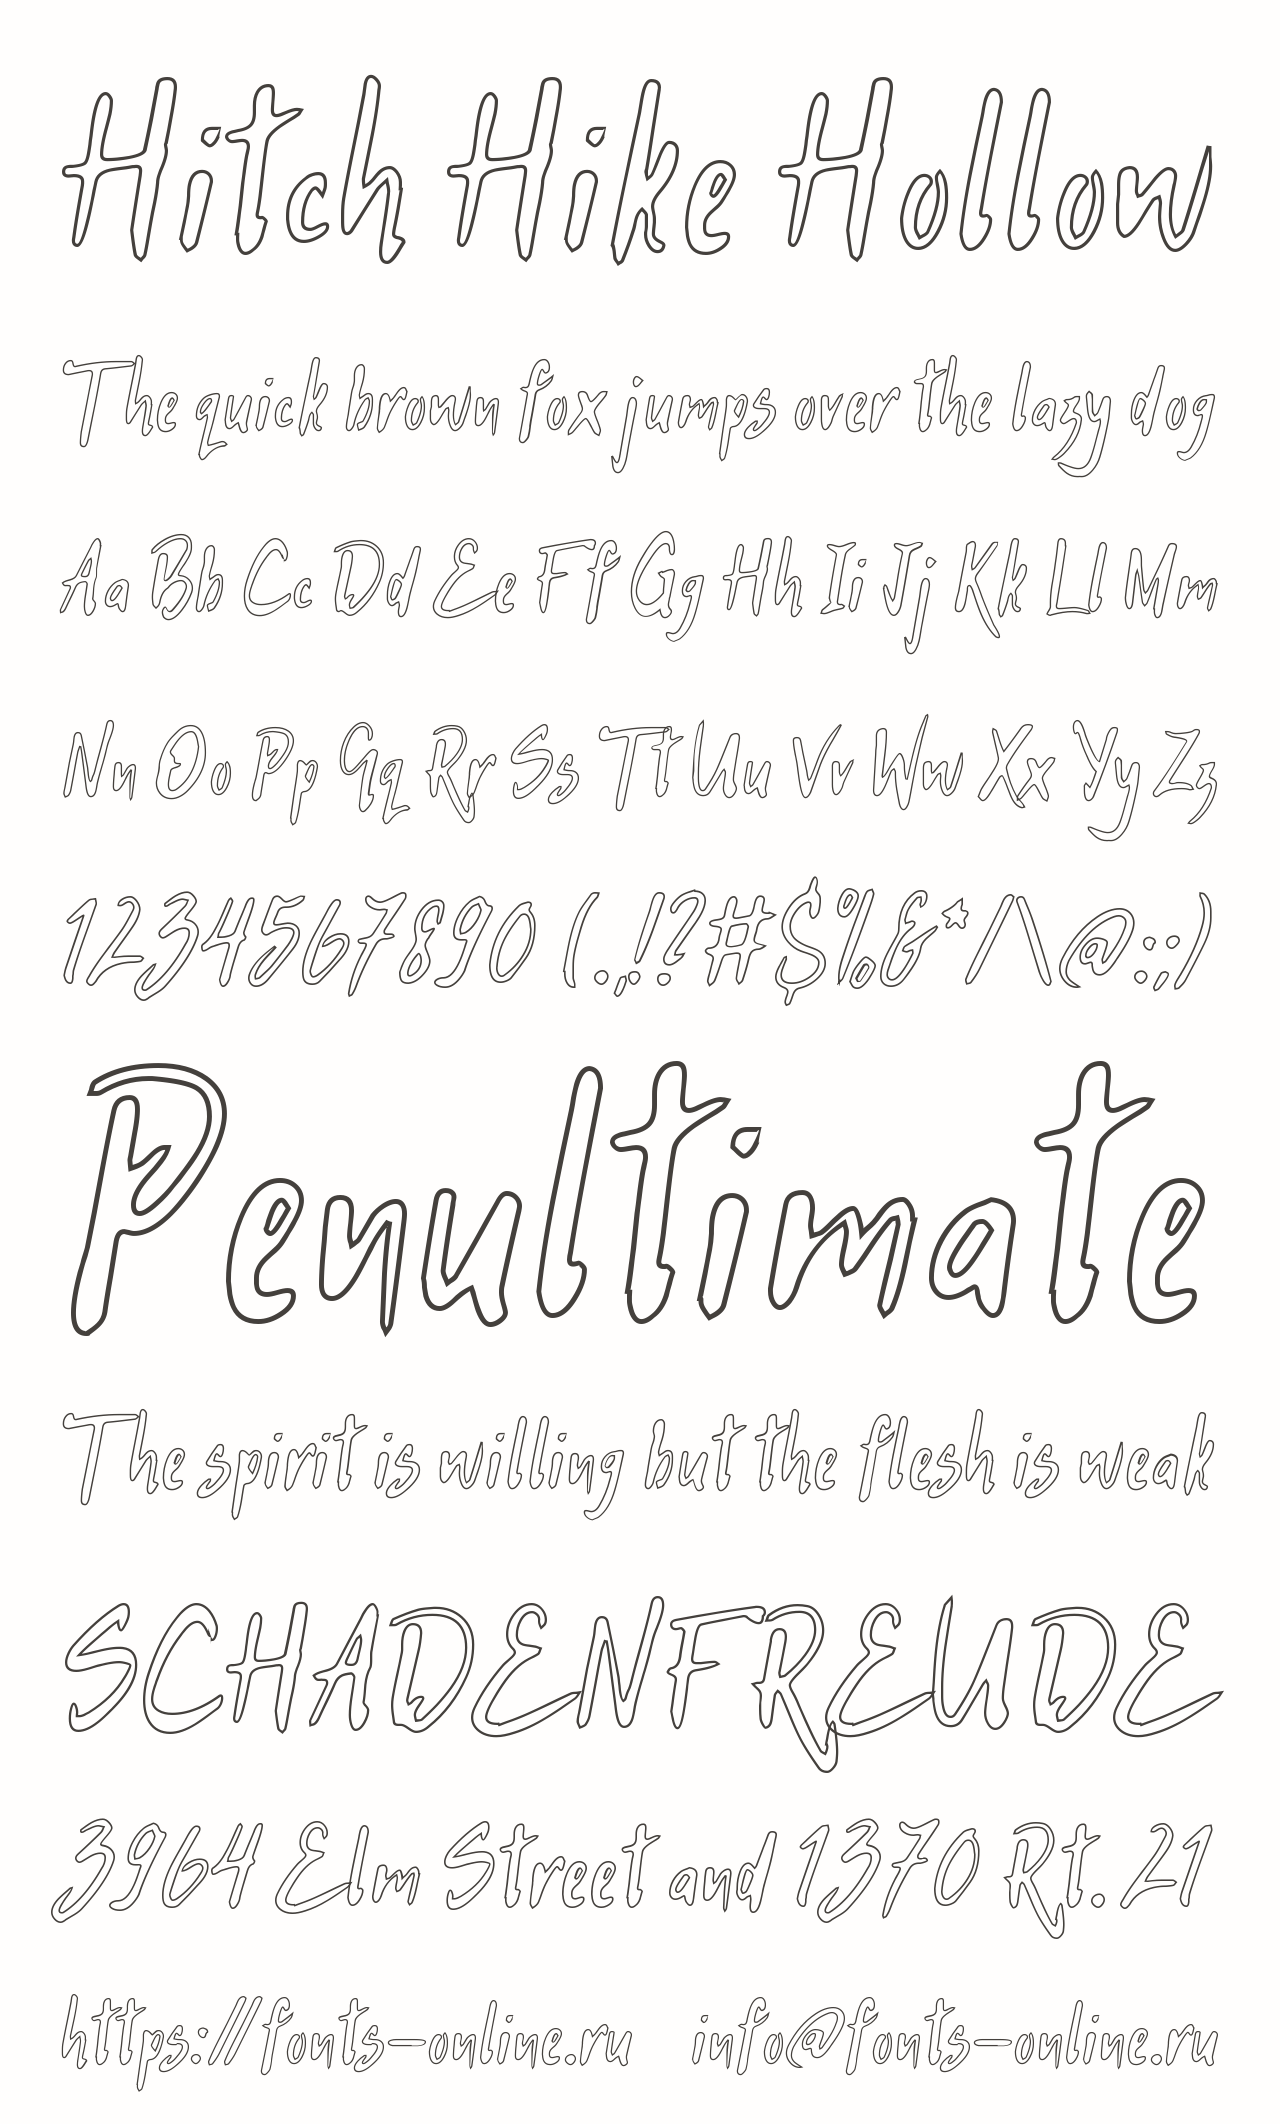 Hitch Hike Hollow
The quick brown fox jumps over the lazy dog
Aa Bb Cc Dd Ee Ff Gg Hh Ii Jj Kk Ll Mm
Nn Oo Pp Qq Rr Ss Tt Uu Vv Ww Xx Yy Zz
1234567890 (.,!?#$%&*/\@:;)
Penultimate
The spirit is willing but the flesh is weak
SCHADENFREUDE
3964 Elm Street and 1370 Rt. 21
https://fonts-online.ru info@fonts-online.ru